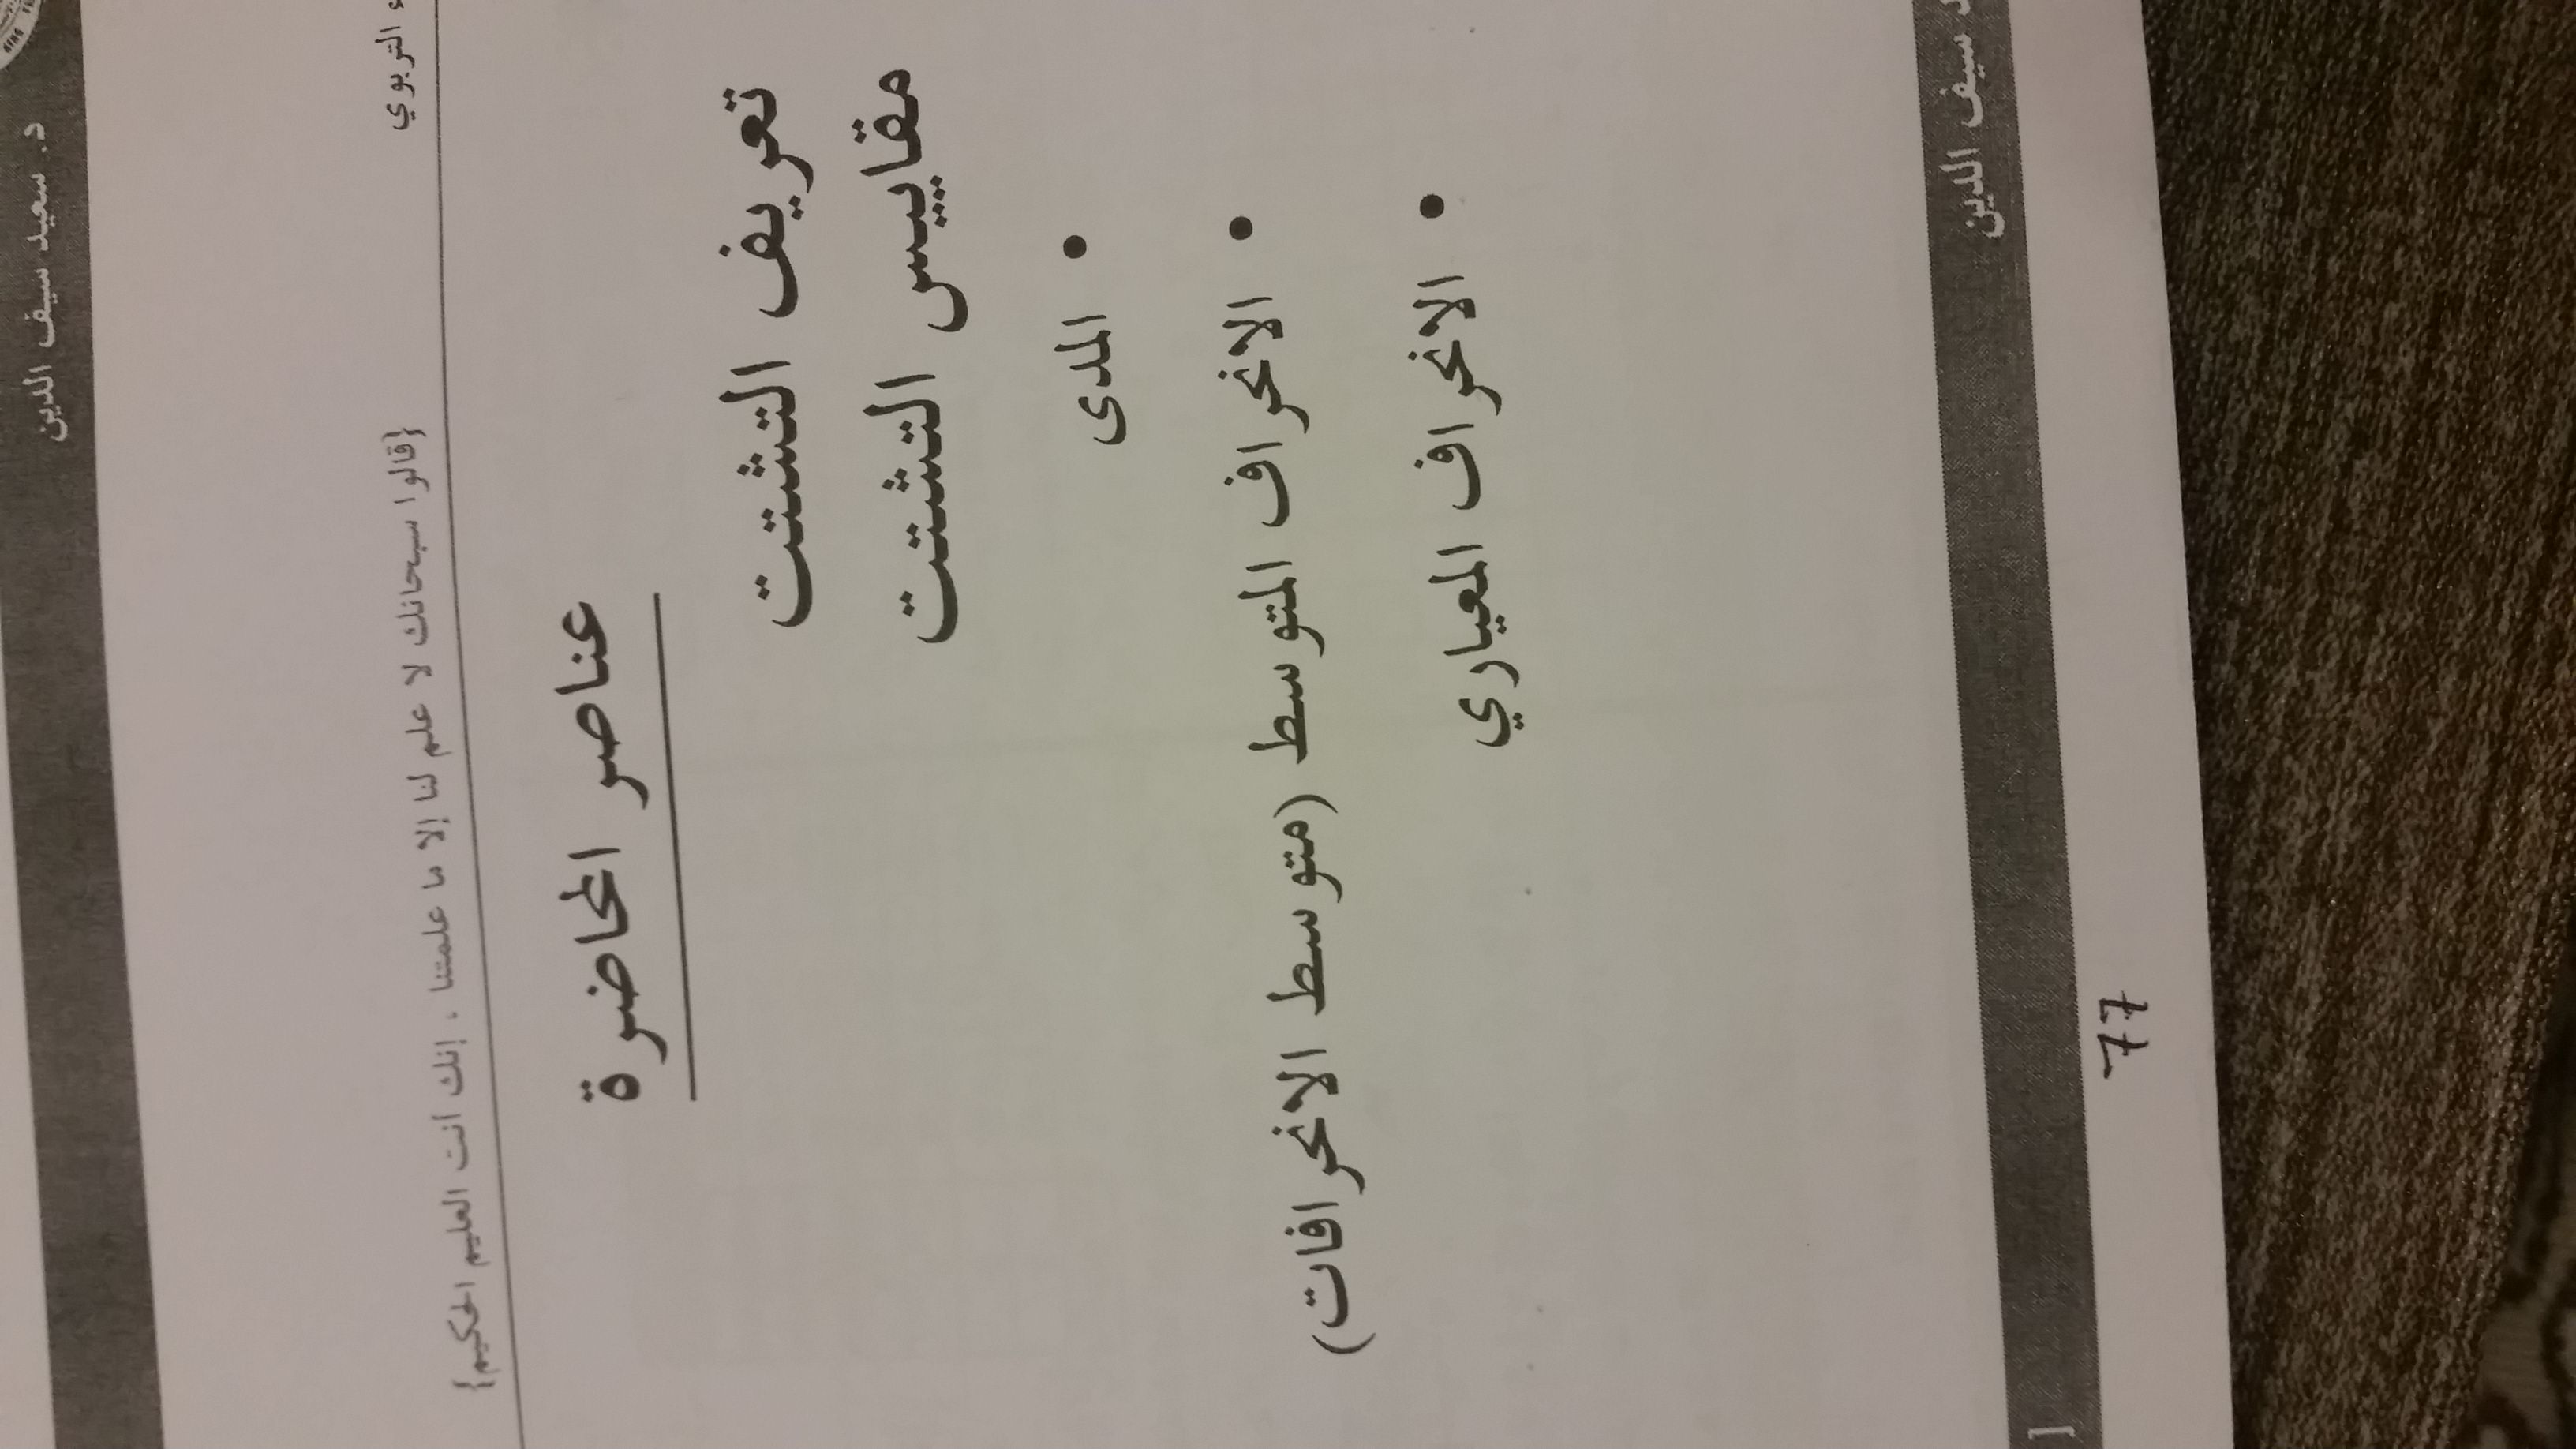 د. سعيد سيف الدين
التربوي
{قالوا سبحانك لا علم لنا إلا ما علمتنا ، إنك أنت العليم الحكيم}
عناصر المحاضرة
تعريف التشتت
مقاييس التشتت
• المدى
• الانحراف المتوسط (متوسط الانحرافات)
• الانحراف المعياري
سيف الدين
77